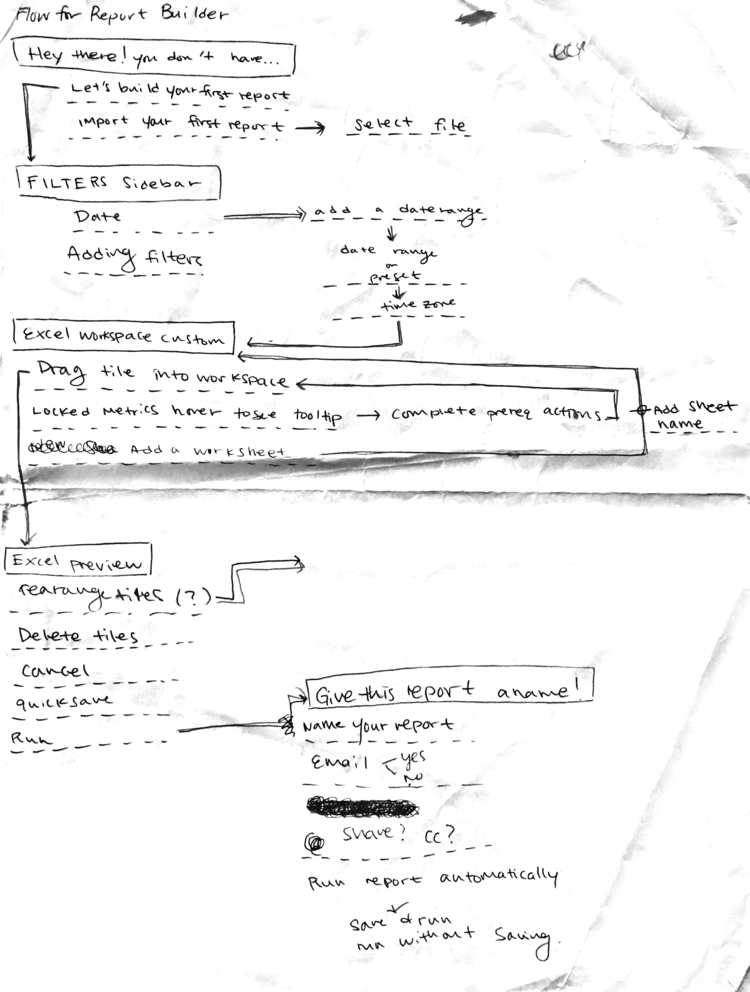 Flow for Report Builder
Hey there! you don't have...
Let's build your first report
import your first report → select file
FILTERS Sidebar
Date → add a daterange
date range
or
preset
time zone
Adding filters
Excel workspace custom
Drag tile into workspace
Locked Metrics hover to see tooltip → complete prereq actions
Add sheet
name
Add a worksheet
Excel preview
rearange tiles (?)
Delete tiles
Cancel
quicksave
Run
Give this report a name!
Name your report
Email < yes
no
Share? CC?
Run report automatically
save & run
run without saving.